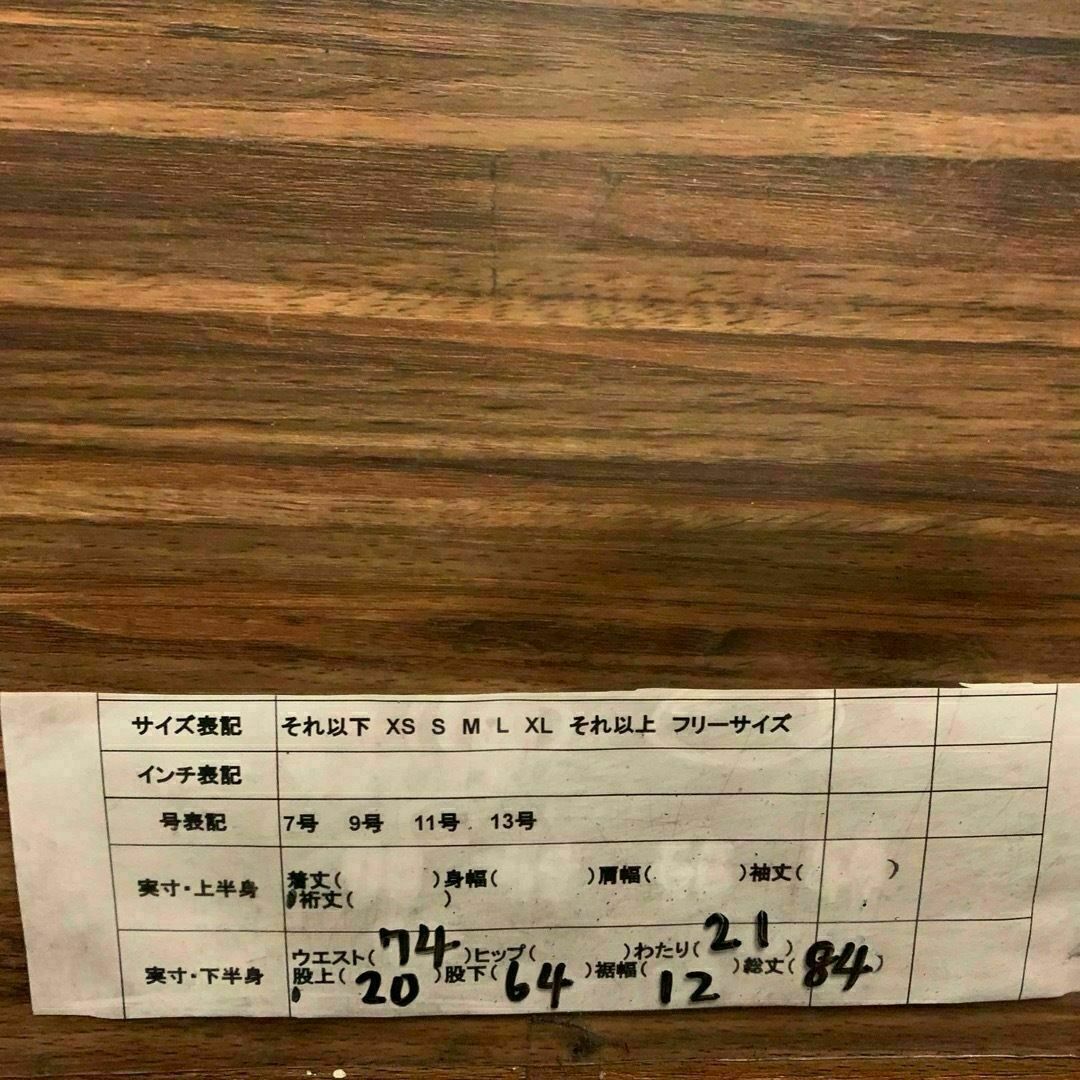 サイズ表記 それ以下 XS S M L XL それ以上 フリーサイズ
インチ表記
号表記 7号 9号 11号 13号
実寸・上半身 着丈( )身幅( )肩幅( )袖丈( )
裄丈( )
実寸・下半身 ウエスト(74)ヒップ( )わたり(21)
股上(20)股下(64)裾幅(12)総丈(84)